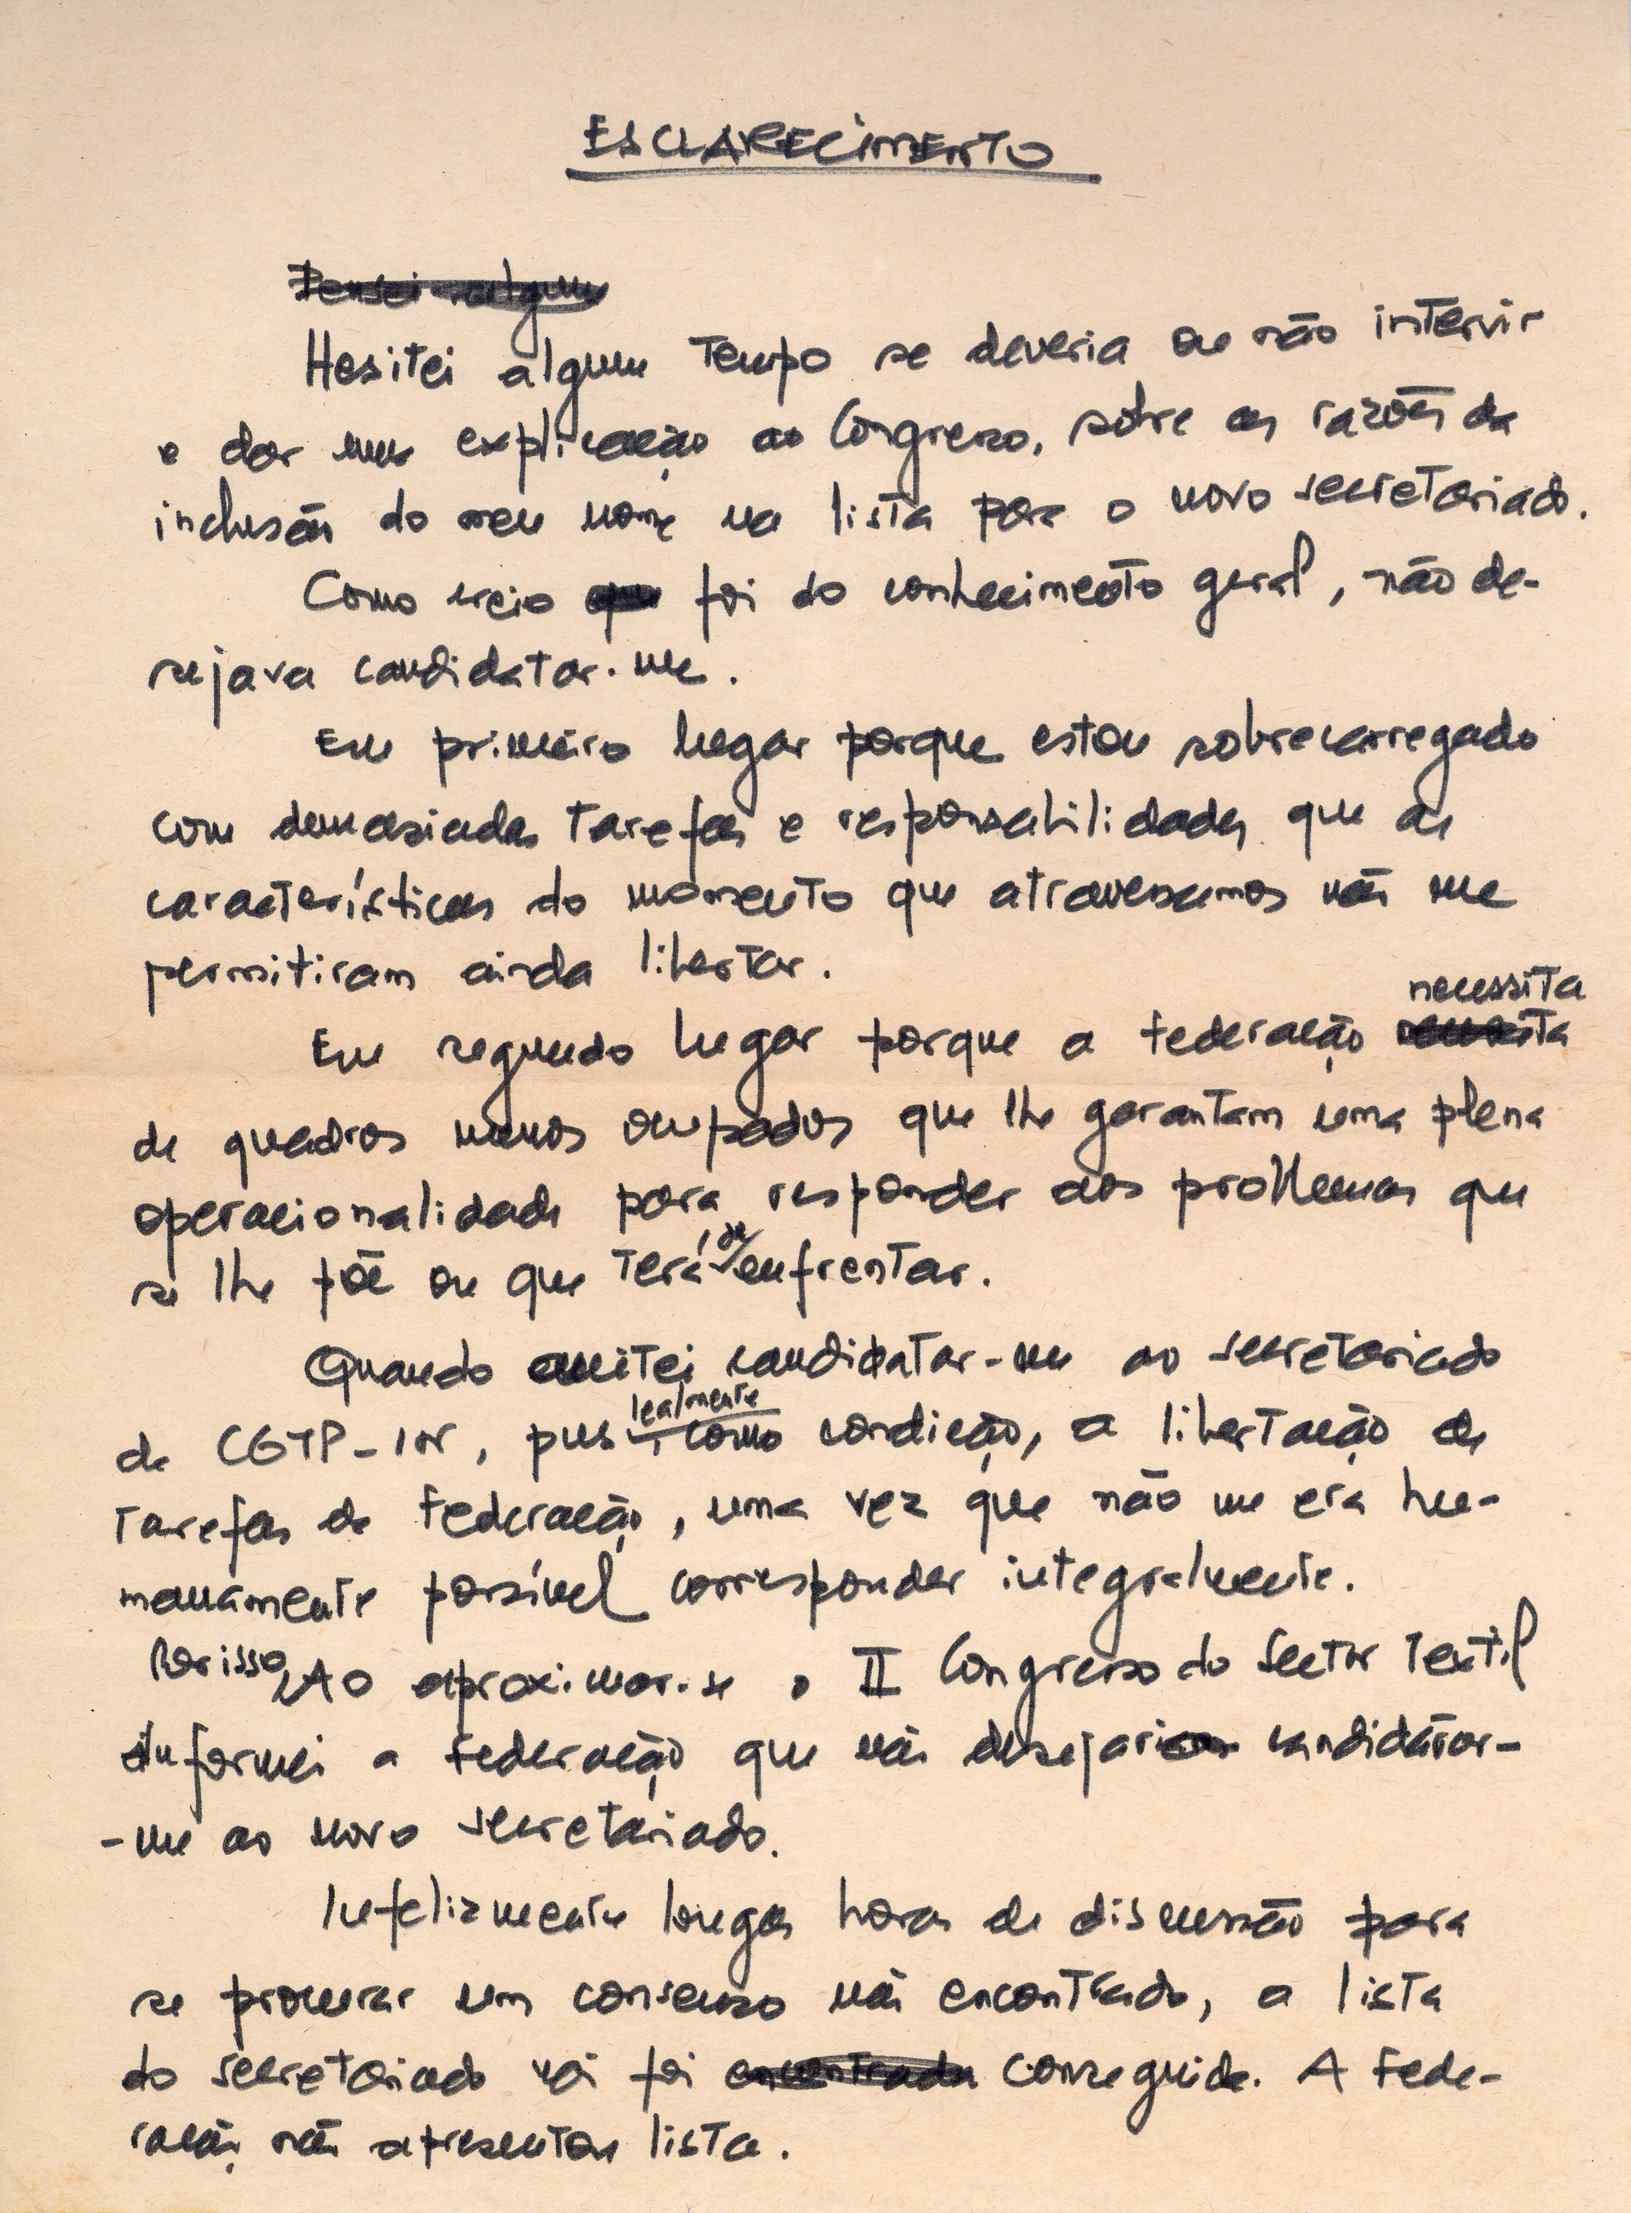 ESCLARECIMENTO
Pensei algum
Hesitei algum tempo se deveria ou não intervir
e dar uma explicação ao Congresso, sobre as razões da
inclusão do meu nome na lista para o novo secretariado.
Como creio que foi do conhecimento geral, não de-
sejava candidatar-me.
Em primeiro lugar porque estou sobrecarregado
com demasiadas tarefas e responsabilidades que as
características do momento que atravessamos não me
permitiram ainda libertar.
necessita
Em segundo lugar porque a Federação necessita
de quadros menos ocupados que lhe garantam uma plena
operacionalidade para responder aos problemas que
se lhe põe ou que terá de enfrentar.
Quando aceitei candidatar-me ao secretariado
da CGTP-IN, pus lealmente como condição, a libertação de
tarefas da Federação, uma vez que não me era hu-
manamente possível corresponder integralmente.
Por isso, Ao aproximar-se o II Congresso do Sector Textil
informei a Federação que não desejaria candidatar-
-me ao novo secretariado.
Infelizmente longas horas de discussão para
se procurar um consenso não encontrado, a lista
do secretariado não foi encontrada conseguida. A Fede-
ração não apresentou lista.